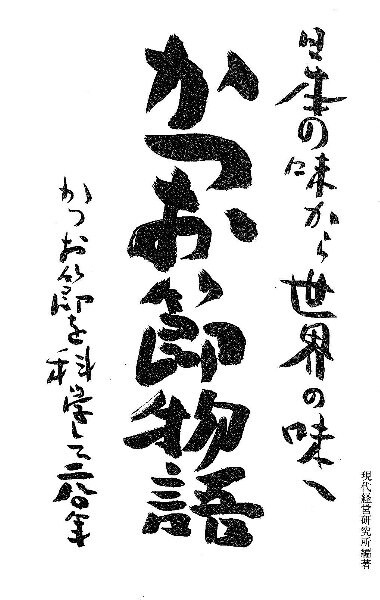 日本の味から世界の味へ
かつお節物語
かつお節を科学して二八〇年
現代経営研究所編著